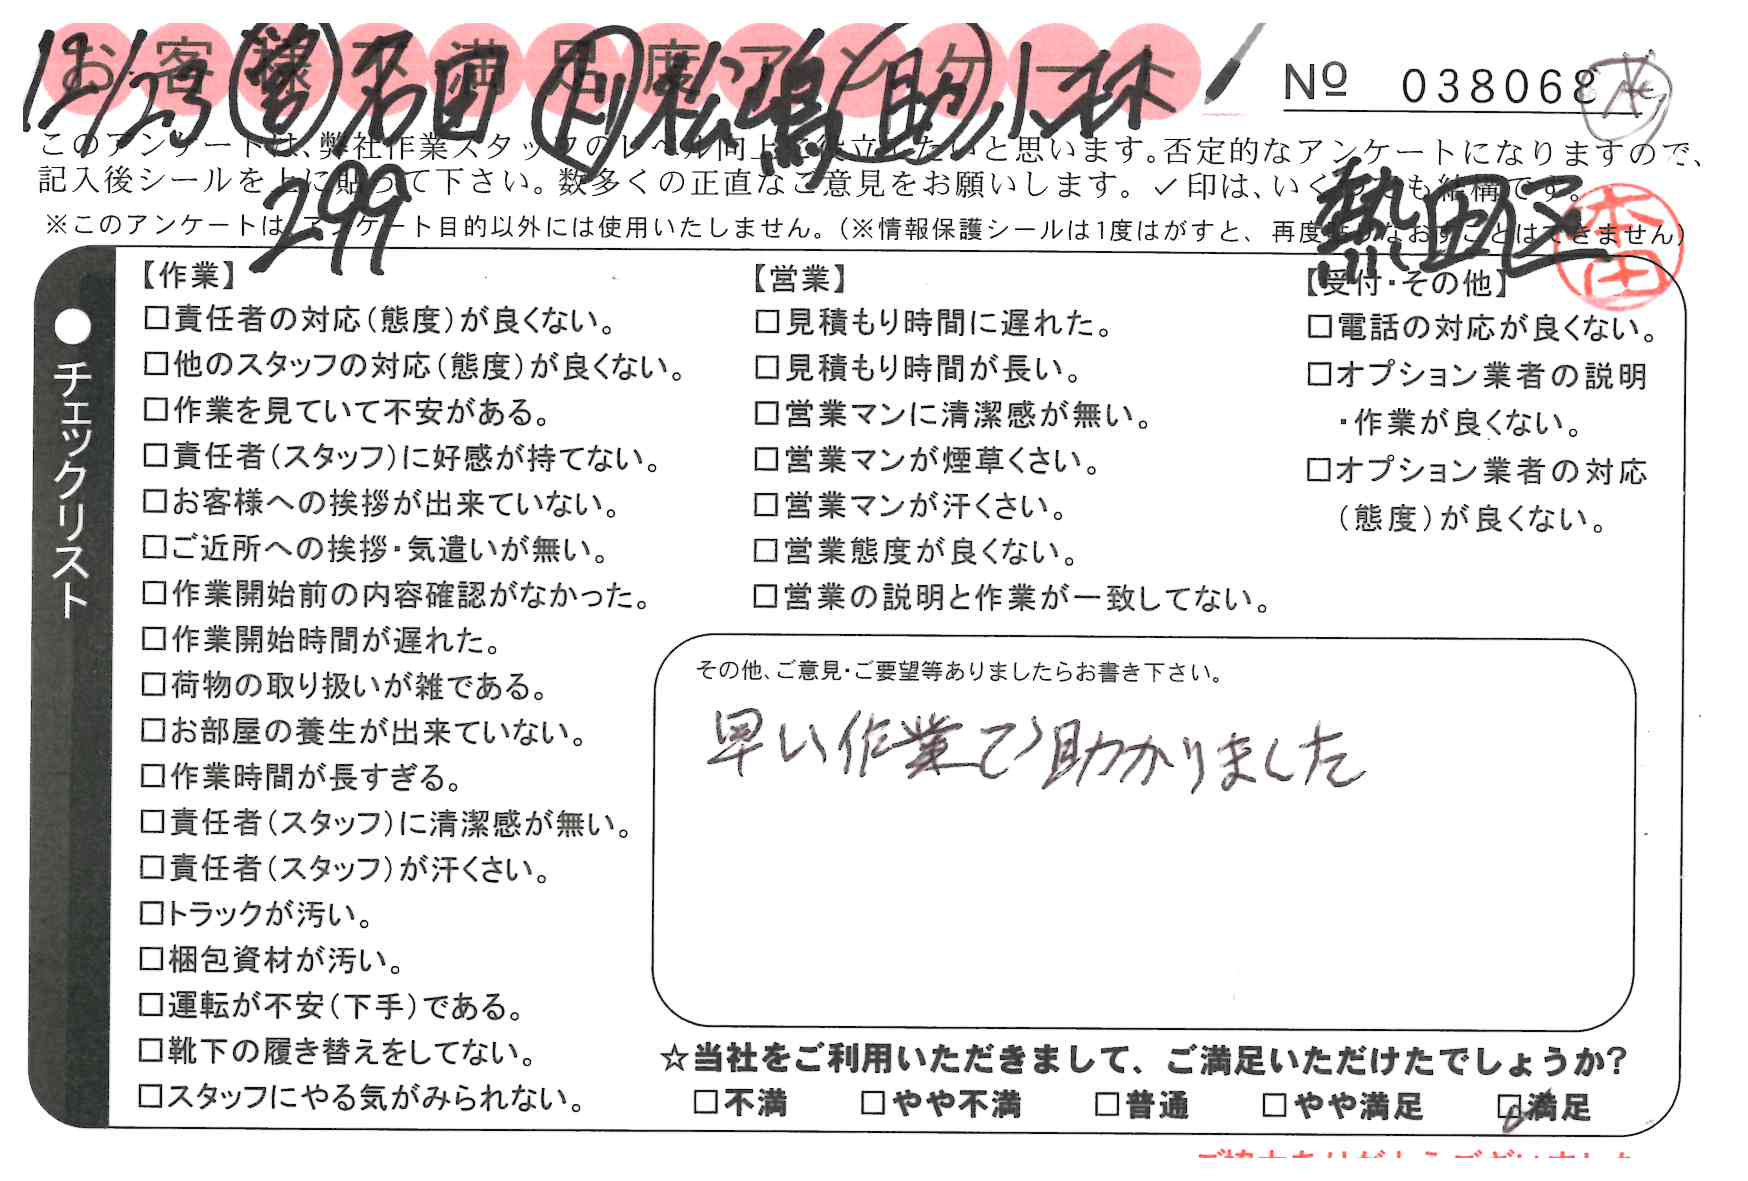 お客様満足度アンケート
12/23 営 名田 リ 松嶋 助 小林
№ 038068
このアンケートは、弊社作業スタッフのレベル向上に役立したいと思います。否定的なアンケートになりますので、
記入後シールを上に貼って下さい。数多くの正直なご意見をお願いします。✓印は、いくつでも結構です。
299
熱田区
本田
※このアンケートは、アンケート目的以外には使用いたしません。(※情報保護シールは1度はがすと、再度はりなおすことはできません)
●チェックリスト
【作業】
□責任者の対応(態度)が良くない。
□他のスタッフの対応(態度)が良くない。
□作業を見ていて不安がある。
□責任者(スタッフ)に好感が持てない。
□お客様への挨拶が出来ていない。
□ご近所への挨拶・気遣いが無い。
□作業開始前の内容確認がなかった。
□作業開始時間が遅れた。
□荷物の取り扱いが雑である。
□お部屋の養生が出来ていない。
□作業時間が長すぎる。
□責任者(スタッフ)に清潔感が無い。
□責任者(スタッフ)が汗くさい。
□トラックが汚い。
□梱包資材が汚い。
□運転が不安(下手)である。
□靴下の履き替えをしてない。
□スタッフにやる気がみられない。
【営業】
□見積もり時間に遅れた。
□見積もり時間が長い。
□営業マンに清潔感が無い。
□営業マンが煙草くさい。
□営業マンが汗くさい。
□営業態度が良くない。
□営業の説明と作業が一致してない。
【受付・その他】
□電話の対応が良くない。
□オプション業者の説明
・作業が良くない。
□オプション業者の対応
(態度)が良くない。
その他、ご意見・ご要望等ありましたらお書き下さい。
早い作業で助かりました
☆当社をご利用いただきまして、ご満足いただけたでしょうか?
□不満 □やや不満 □普通 □やや満足 ☑満足
ご協力ありがとうございました